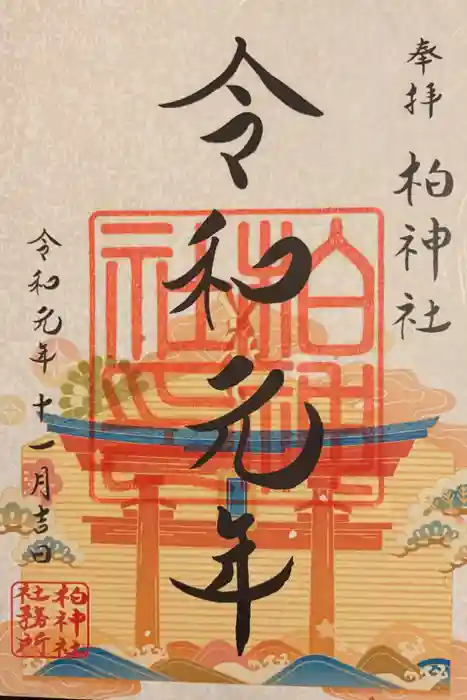 奉拝
柏神社
令和元年
令和元年十一月吉日
柏神社
社務所
柏神
社印